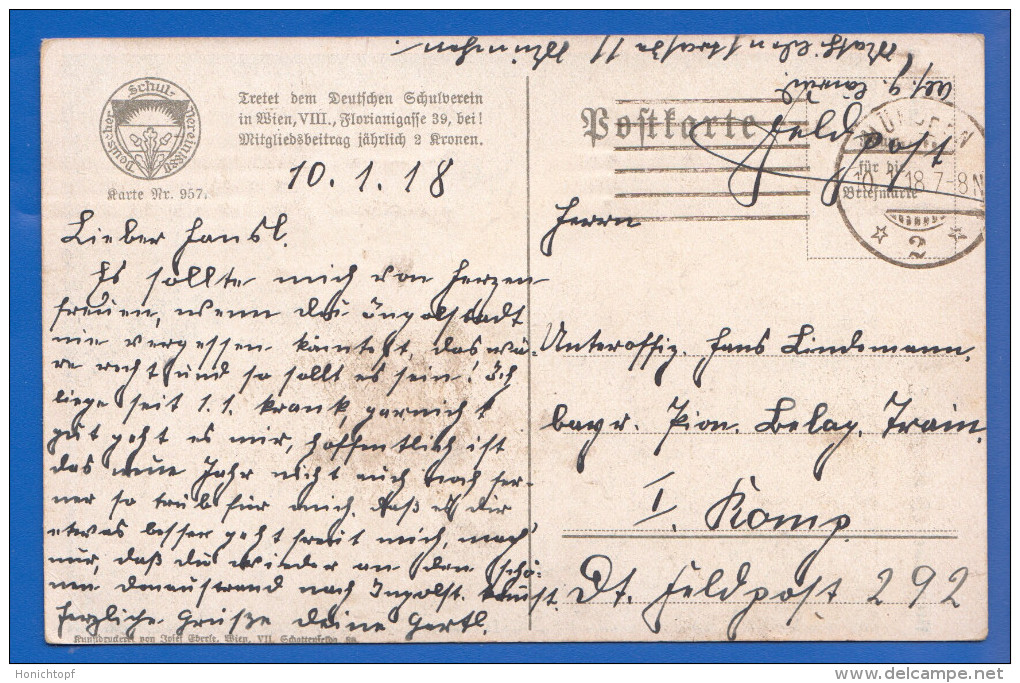 Mathildenstrasse 11 München.
Deutscher Schul-Verein 1880
Tretet dem Deutschen Schulverein
in Wien, VIII., Florianigasse 39, bei!
Mitgliedsbeitrag jährlich 2 Kronen.
Karte Nr. 957.
Postkarte
Feldpost
MÜNCHEN
10. 18. 7-8N
2
für die
Briefmarke
10. 1. 18
Lieber Hansl.
Es sollte mich von Herzen
freuen, wenn du Ingolstadt
nie vergessen könntest, das wä-
re recht und so sollt es sein! Ich
liege seit 1.1. krank, garnicht
gut geht es mir, hoffentlich ist
das neue Jahr nicht auch noch fer-
ner so trüb für mich. Daß es dir
etwas besser geht freut mich, mach
nur, daß du wieder an den schö-
nen Donaustrand nach Ingolst. kommst.
Herzliche Grüße Deine Gertl.
Kunstdruckerei von Josef Eberle, Wien, VII. Schottenfeldg.
Herrn
Unteroffiz. Hans Lindemann.
bayr. Pion. Belag. Train.
I. Komp.
Dt. Feldpost 292
Honichtopf
www.delcampe.net